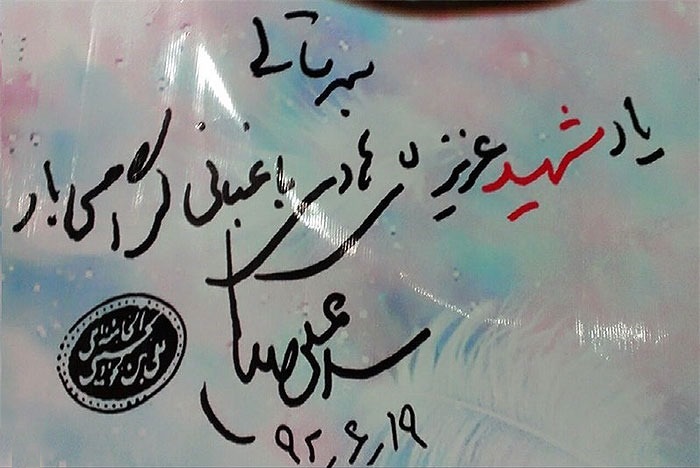 بسمه تعالی
یاد شهید عزیز هادی باغبانی گرامی باد
سید علی
۹۲٫۶٫۱۹